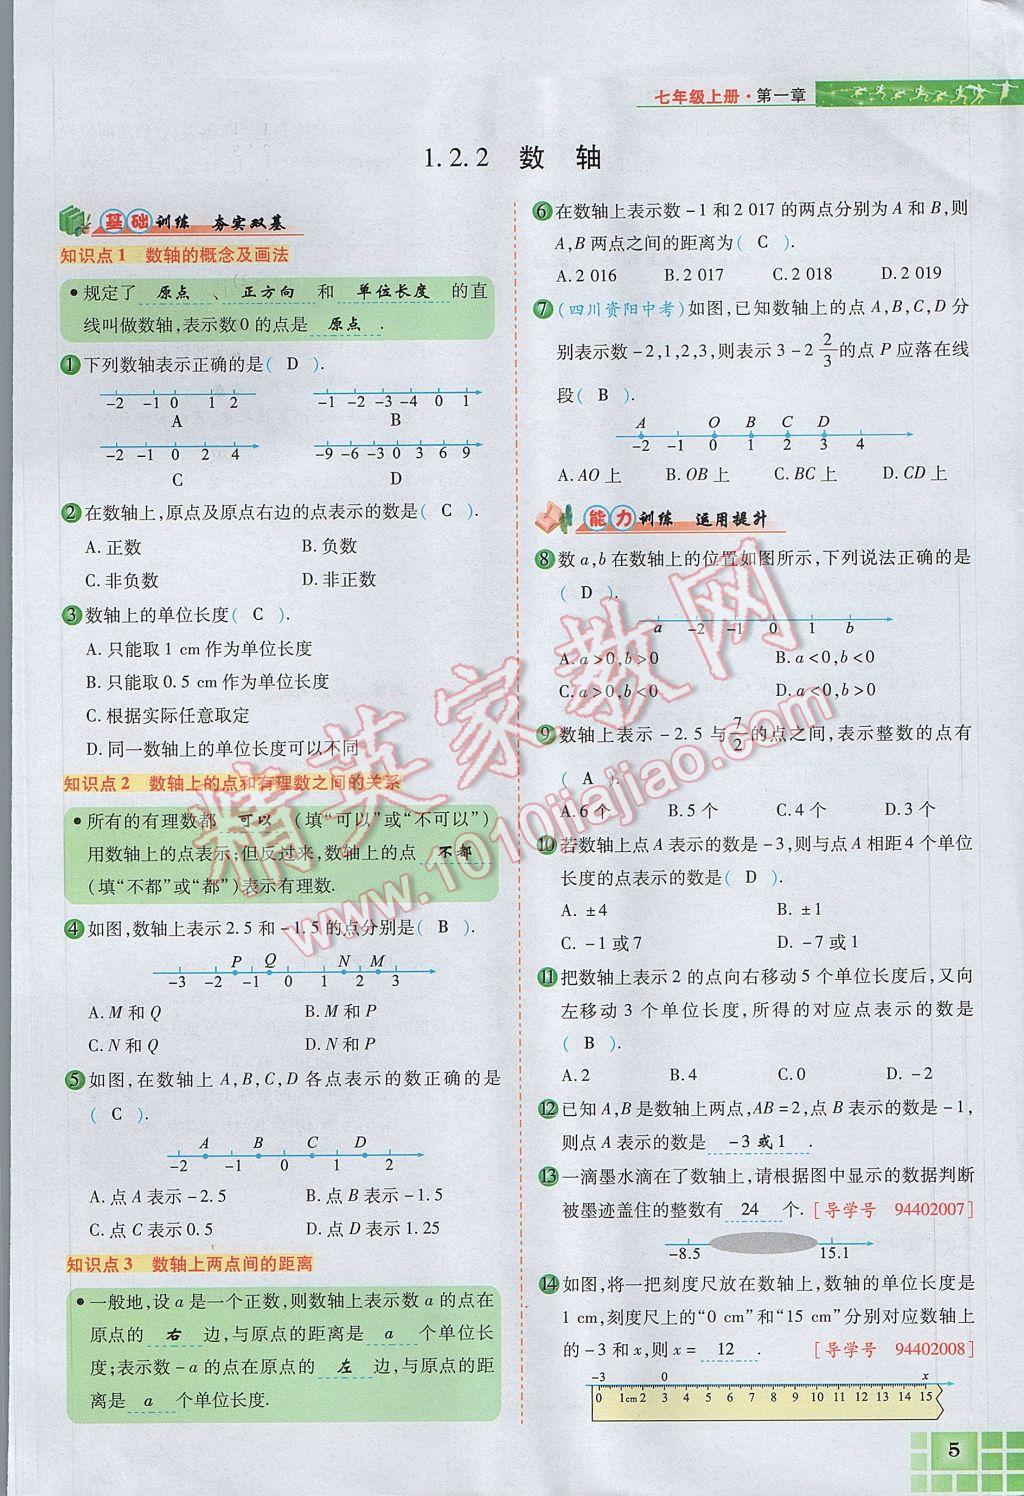 七年级上册·第一章
1.2.2 数 轴
基础训练 夯实双基
知识点1 数轴的概念及画法
•规定了 原点 、 正方向 和 单位长度 的直
线叫做数轴,表示数0的点是 原点 .
1 下列数轴表示正确的是( D ).
-2 -1 0 1 2
A
-1 -2 -3 -4 0 1
B
-2 -1 0 2 4
C
-9 -6 -3 0 3 6 9
D
2 在数轴上,原点及原点右边的点表示的数是( C ).
A.正数 B.负数
C.非负数 D.非正数
3 数轴上的单位长度( C ).
A.只能取1 cm作为单位长度
B.只能取0.5 cm作为单位长度
C.根据实际任意取定
D.同一数轴上的单位长度可以不同
知识点2 数轴上的点和有理数之间的关系
•所有的有理数都 可以 (填“可以”或“不可以”)
用数轴上的点表示;但反过来,数轴上的点 不都
(填“不都”或“都”)表示有理数.
4 如图,数轴上表示2.5和-1.5的点分别是( B ).
P Q N M
-3 -2 -1 0 1 2 3
A.M和Q B.M和P
C.N和Q D.N和P
5 如图,在数轴上A,B,C,D各点表示的数正确的是
( C ).
A B C D
-2 -1 0 1 2
A.点A表示-2.5 B.点B表示-1.5
C.点C表示0.5 D.点D表示1.25
知识点3 数轴上两点间的距离
•一般地,设a是一个正数,则数轴上表示数a的点在
原点的 右 边,与原点的距离是 a 个单位长
度;表示数-a的点在原点的 左 边,与原点的距
离是 a 个单位长度.
6 在数轴上表示数-1和2 017的两点分别为A和B,则
A,B两点之间的距离为( C ).
A.2 016 B.2 017 C.2 018 D.2 019
7 (四川资阳中考)如图,已知数轴上的点A,B,C,D分
别表示数-2,1,2,3,则表示3-2 2/3的点P应落在线
段( B ).
A O B C D
-2 -1 0 1 2 3 4
A.AO上 B.OB上 C.BC上 D.CD上
能力训练 运用提升
8 数a,b在数轴上的位置如图所示,下列说法正确的是
( D ).
a -2 -1 0 1 b
A.a>0,b>0 B.a<0,b<0
C.a>0,b<0 D.a<0,b>0
9 数轴上表示-2.5与7/2的点之间,表示整数的点有
( A ).
A.6个 B.5个 C.4个 D.3个
10 若数轴上点A表示的数是-3,则与点A相距4个单位
长度的点表示的数是( D ).
A.±4 B.±1
C.-1或7 D.-7或1
11 把数轴上表示2的点向右移动5个单位长度后,又向
左移动3个单位长度,所得的对应点表示的数是
( B ).
A.2 B.4 C.0 D.-2
12 已知A,B是数轴上两点,AB=2,点B表示的数是-1,
则点A表示的数是 -3或1 .
13 一滴墨水滴在了数轴上,请根据图中显示的数据判断
被墨迹盖住的整数有 24 个. [导学号 94402007]
-8.5 15.1
14 如图,将一把刻度尺放在数轴上,数轴的单位长度是
1 cm,刻度尺上的“0 cm”和“15 cm”分别对应数轴上
的-3和x,则x= 12 . [导学号 94402008]
-3 0 x
0 1cm 2 3 4 5 6 7 8 9 10 11 12 13 14 15
5
精英家教网
www.1010jiajiao.com